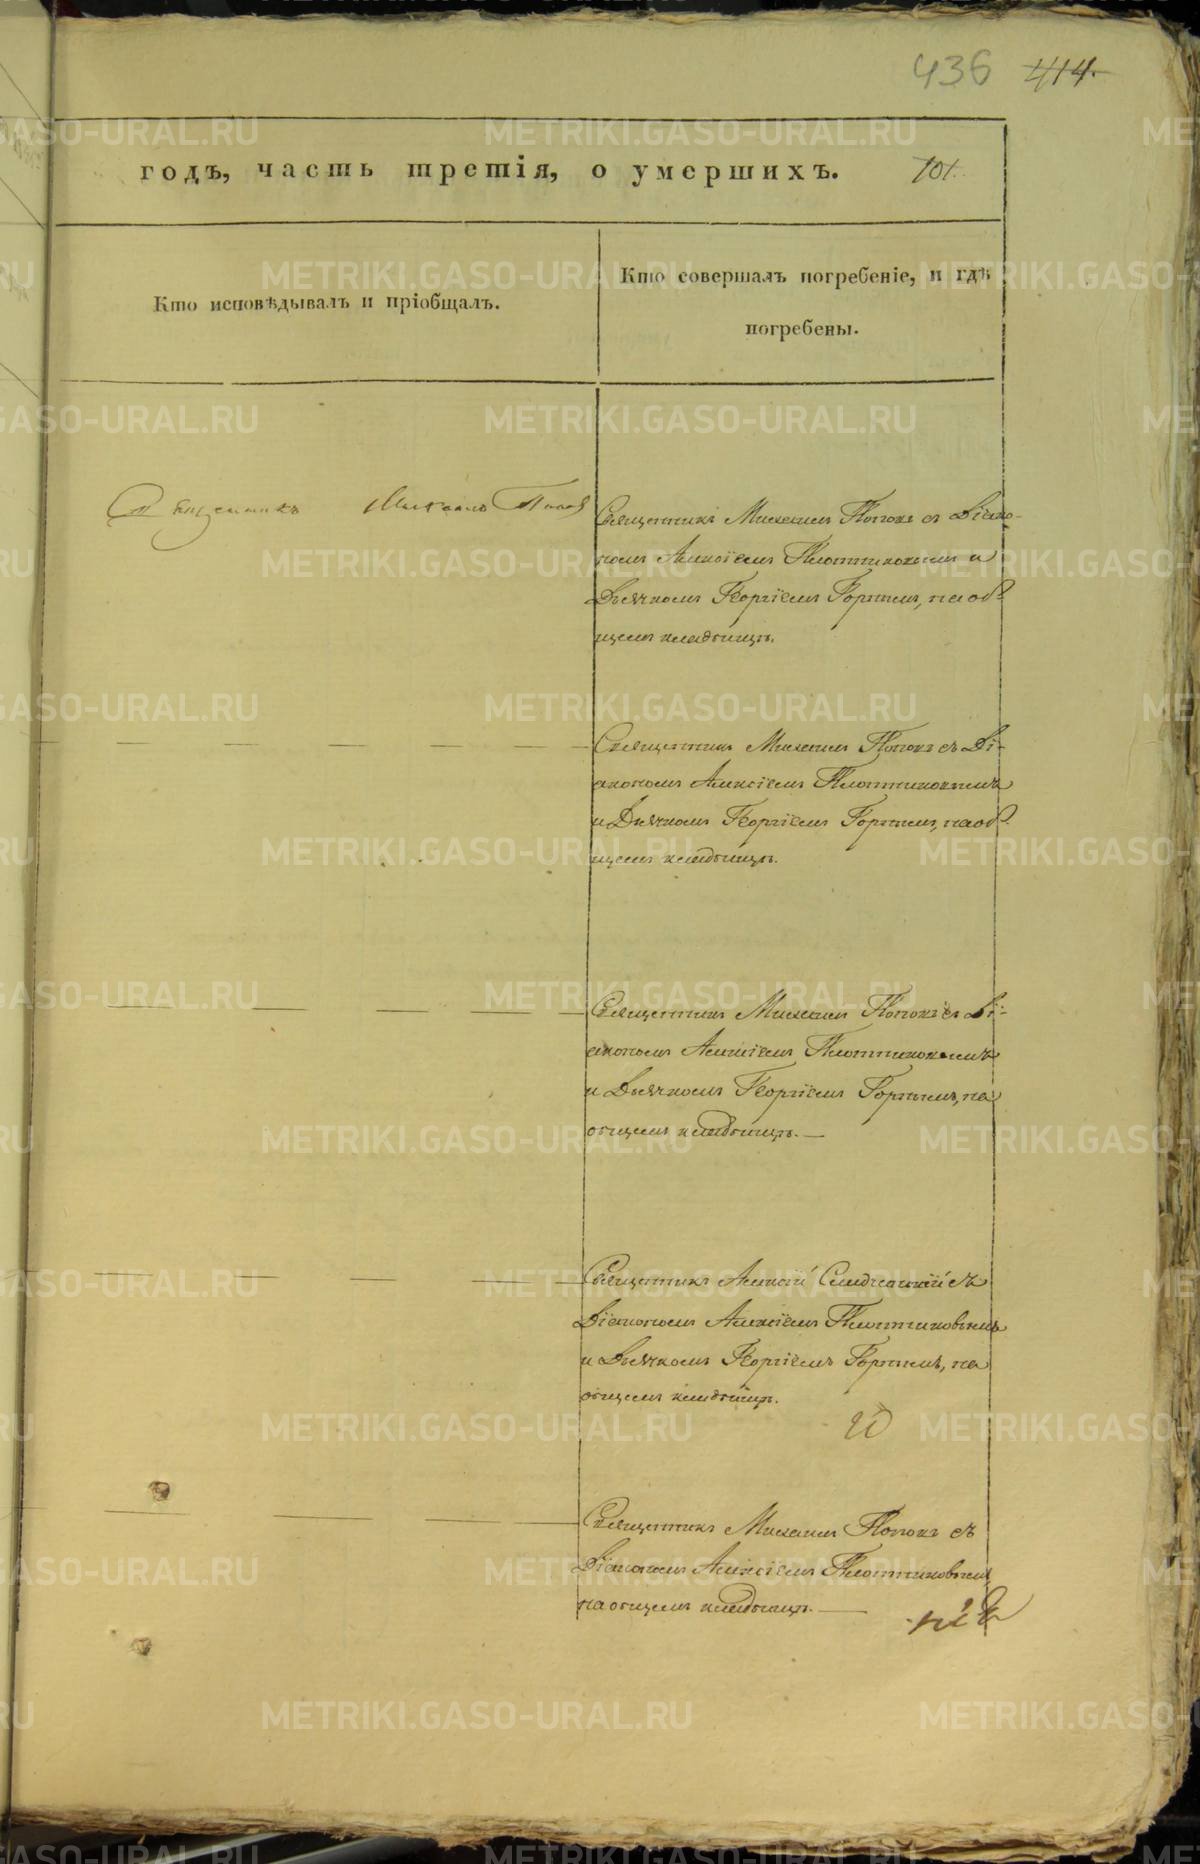 436 414.
годъ, часть третія, о умершихъ. 101.
Кто исповѣдывалъ и пріобщалъ.
Кто совершалъ погребеніе, и гдѣ
погребены.
Священникъ Михаилъ Попов
Священникъ Михаилъ Поповъ съ Діако-
номъ Алексіемъ Плотниковымъ и
Дьячкомъ Георгіемъ Горнымъ, на об-
щемъ кладбищѣ.
Священникъ Михаилъ Поповъ съ Ді-
акономъ Алексіемъ Плотниковымъ
и Дьячкомъ Георгіемъ Горнымъ, на об-
щемъ кладбищѣ.
Священникъ Михаилъ Поповъ съ Ді-
акономъ Алексіемъ Плотниковымъ
и Дьячкомъ Георгіемъ Горнымъ, на
общемъ кладбищѣ. —
Священникъ Алексій съ
Діакономъ Алексіемъ Плотниковымъ
и Дьячкомъ Георгіемъ Горнымъ, на
общемъ кладбищѣ.
Священникъ Михаилъ Поповъ съ
Діакономъ Алексіемъ Плотниковымъ,
на общемъ кладбищѣ. —
METRIKI.GASO-URAL.RU